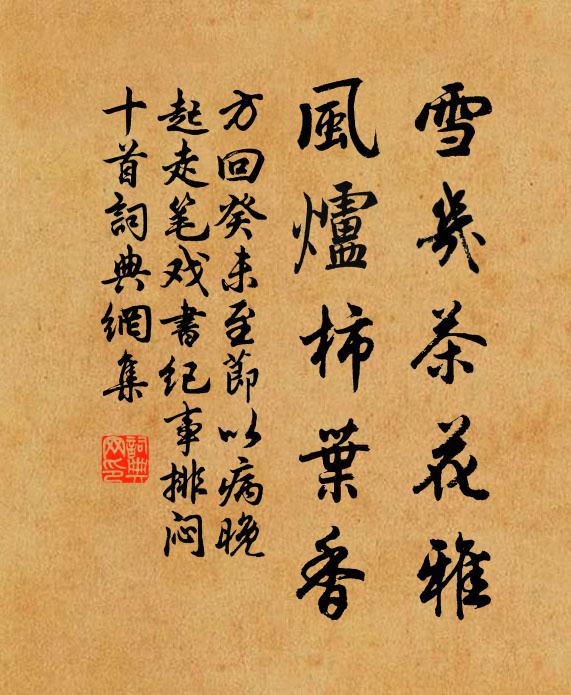 雪幾茶花雅
風爐柿葉香
方回癸未至節以病晚
起走笔戏書纪事排闷
十首詞典網集
詞典
网印